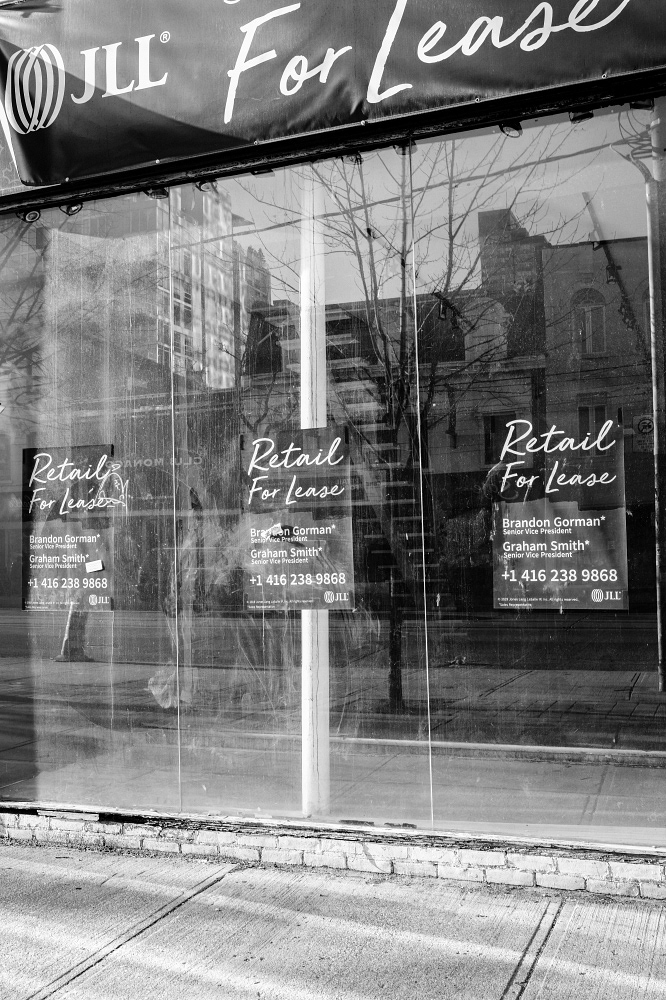 JLL®
For Lease
Retail
For Lease
Brandon Gorman*
Senior Vice President
Graham Smith*
Senior Vice President
+1 416 238 9868
JLL
Retail
For Lease
Gorman*
Senior Vice President
Graham Smith*
Senior Vice President
+1 416 238 9868
JLL
Retail
For Lease
Brandon Gorman*
Senior Vice President
Graham Smith*
Senior Vice President
+1 416 238 9868
Jones Lang LaSalle IP, Inc. All rights reserved.
*Sales Representative
JLL